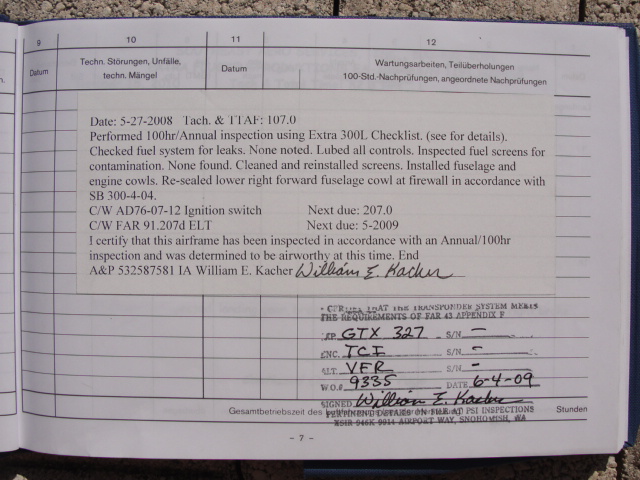 n.
9 10 11 12
Datum Techn. Störungen, Unfälle, techn. Mängel Datum Wartungsarbeiten, Teilüberholungen
100-Std.-Nachprüfungen, angeordnete Nachprüfungen
Date: 5-27-2008 Tach. & TTAF: 107.0
Performed 100hr/Annual inspection using Extra 300L Checklist. (see for details).
Checked fuel system for leaks. None noted. Lubed all controls. Inspected fuel screens for
contamination. None found. Cleaned and reinstalled screens. Installed fuselage and
engine cowls. Re-sealed lower right forward fuselage cowl at firewall in accordance with
SB 300-4-04.
C/W AD76-07-12 Ignition switch Next due: 207.0
C/W FAR 91.207d ELT Next due: 5-2009
I certify that this airframe has been inspected in accordance with an Annual/100hr
inspection and was determined to be airworthy at this time. End
A&P 532587581 IA William E. Kacher William E. Kacher
THAT THE TRANSPONDER SYSTEM MEETS
THE REQUIREMENTS OF FAR 43 APPENDIX F
GTX 327 S/N —
ENC. TCI S/N —
ALT. VFR S/N —
W.O.# 9335 DATE 6-4-09
SIGNED William E. Kacher
Gesamtbetriebszeit des Stunden
PERTINENT DETAILS ON FILE AT PSI INSPECTIONS
9914 AIRPORT WAY, SNOHOMISH, WA
– 7 –